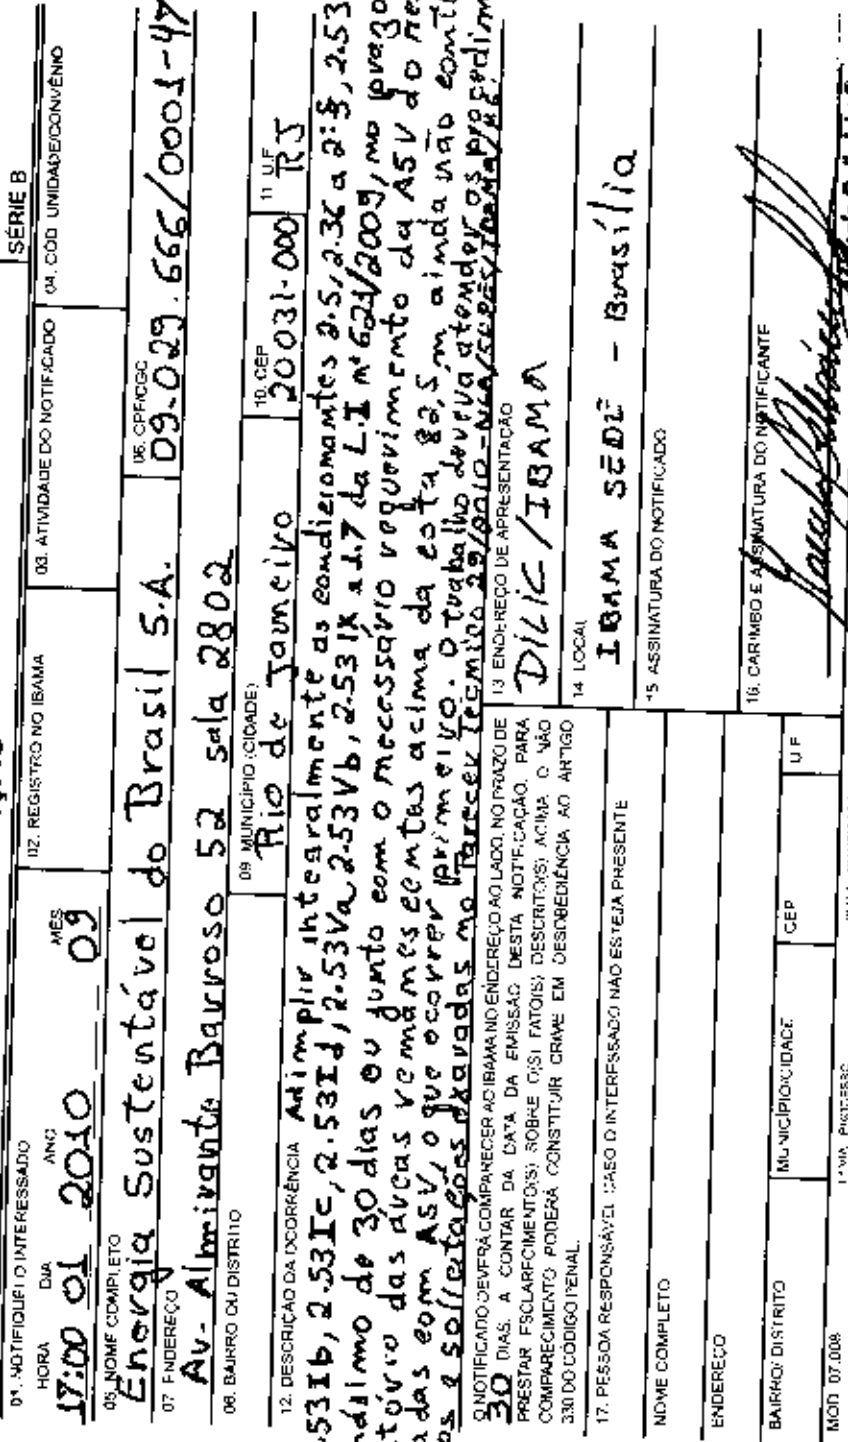 SÉRIE B
01. NOTIFIQUEI O INTERESSADO
HORA DIA ANO MÊS
17:00 01 2010 09
02. REGISTRO NO IBAMA
03. ATIVIDADE DO NOTIFICADO
04. CÓD. UNIDADE/CONVÊNIO
05. NOME COMPLETO
Energia Sustentável do Brasil S.A.
06. CPF/CGC
09.029.666/0001-47
07. ENDEREÇO
Av. Almirante Barroso 52 sala 2802
08. BAIRRO OU DISTRITO
09. MUNICÍPIO (CIDADE)
Rio de Janeiro
10. CEP
20031-000
11. U.F
RJ
12. DESCRIÇÃO DA OCORRÊNCIA Adimplir integralmente as condicionantes 2.5, 2.36 a 2.5, 2.53
53Ib, 2.53Ic, 2.53Id, 2.53Va 2.53Vb, 2.53IX e 2.7 da L.I nº 621/2009, no prazo
máximo de 30 dias ou junto com o necessário requerimento da ASV do
das áreas remanescentes acima da cota 82,5m, ainda não
das com ASV, o que ocorrer primeiro. O trabalho deverá atender os
e solicitações exaradas no Parecer Técnico 29/2010
O NOTIFICADO DEVERÁ COMPARECER AO IBAMA NO ENDEREÇO AO LADO, NO PRAZO DE
30 DIAS, A CONTAR DA DATA DA EMISSÃO DESTA NOTIFICAÇÃO, PARA
PRESTAR ESCLARECIMENTO(S) SOBRE O(S) FATO(S) DESCRITO(S) ACIMA. O NÃO
COMPARECIMENTO PODERÁ CONSTITUIR CRIME EM DESOBEDIÊNCIA AO ARTIGO
330 DO CÓDIGO PENAL.
13 ENDEREÇO DE APRESENTAÇÃO
DILIC/IBAMA
14 LOCAL
IBAMA SEDE - Brasília
15 ASSINATURA DO NOTIFICADO
16. CARIMBO E ASSINATURA DO NOTIFICANTE
17. PESSOA RESPONSÁVEL CASO O INTERESSADO NÃO ESTEJA PRESENTE
NOME COMPLETO
ENDEREÇO
BAIRRO/ DISTRITO
MUNICÍPIO/CIDADE
CEP
U F
MOD 07.008
1ª VIA PROCESSO